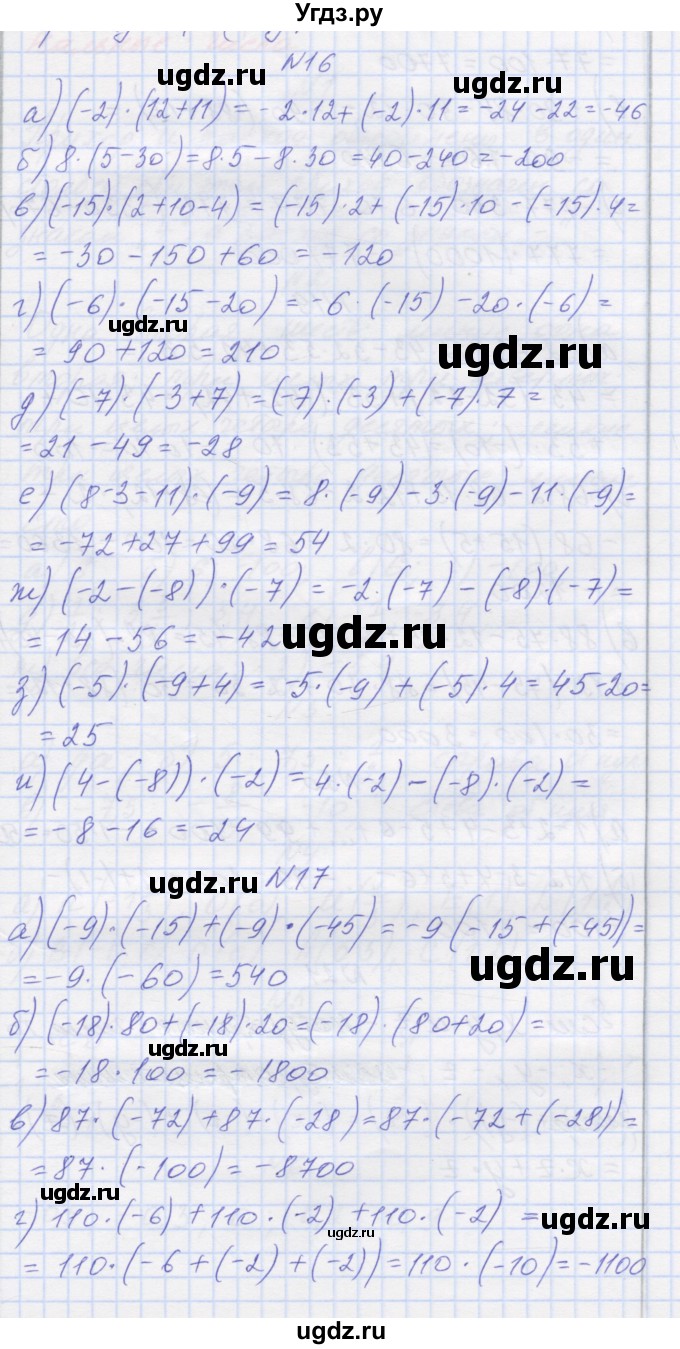 Угдз.ру
N16
ugdz.ru
а) (-2)·(12+11) = -2·12+(-2)·11 = -24-22 = -46
б) 8·(5-30) = 8·5-8·30 = 40-240 = -200
в) (-15)·(2+10-4) = (-15)·2+(-15)·10-(-15)·4=
= -30-150+60 = -120
г) (-6)·(-15-20) = -6·(-15)-20·(-6) =
ugdz.ru
= 90+120 = 210
ugdz.ru
д) (-7)·(-3+7) = (-7)·(-3)+(-7)·7 =
= 21-49 = -28
е) (8-3-11)·(-9) = 8·(-9)-3·(-9)-11·(-9)=
= -72+27+99 = 54
ж) (-2-(-8))·(-7) = -2·(-7)-(-8)·(-7) =
= 14-56 = -42
ugdz.ru
з) (-5)·(-9+4) = -5·(-9)+(-5)·4 = 45-20=
= 25
и) (4-(-8))·(-2) = 4·(-2)-(-8)·(-2) =
= -8-16 = -24
ugdz.ru
N17
а) (-9)·(-15)+(-9)·(-45) = -9(-15+(-45))=
= -9·(-60) = 540
ugdz.ru
б) (-18)·80+(-18)·20 = (-18)·(80+20) =
ugdz.ru
= -18·100 = -1800
в) 87·(-72)+87·(-28) = 87·(-72+(-28))=
= 87·(-100) = -8700
ugdz.ru
г) 110·(-6)+110·(-2)+110·(-2) =
ugdz.ru
ugdz.ru
= 110·(-6+(-2)+(-2)) = 110·(-10) = -1100
ugdz.ru